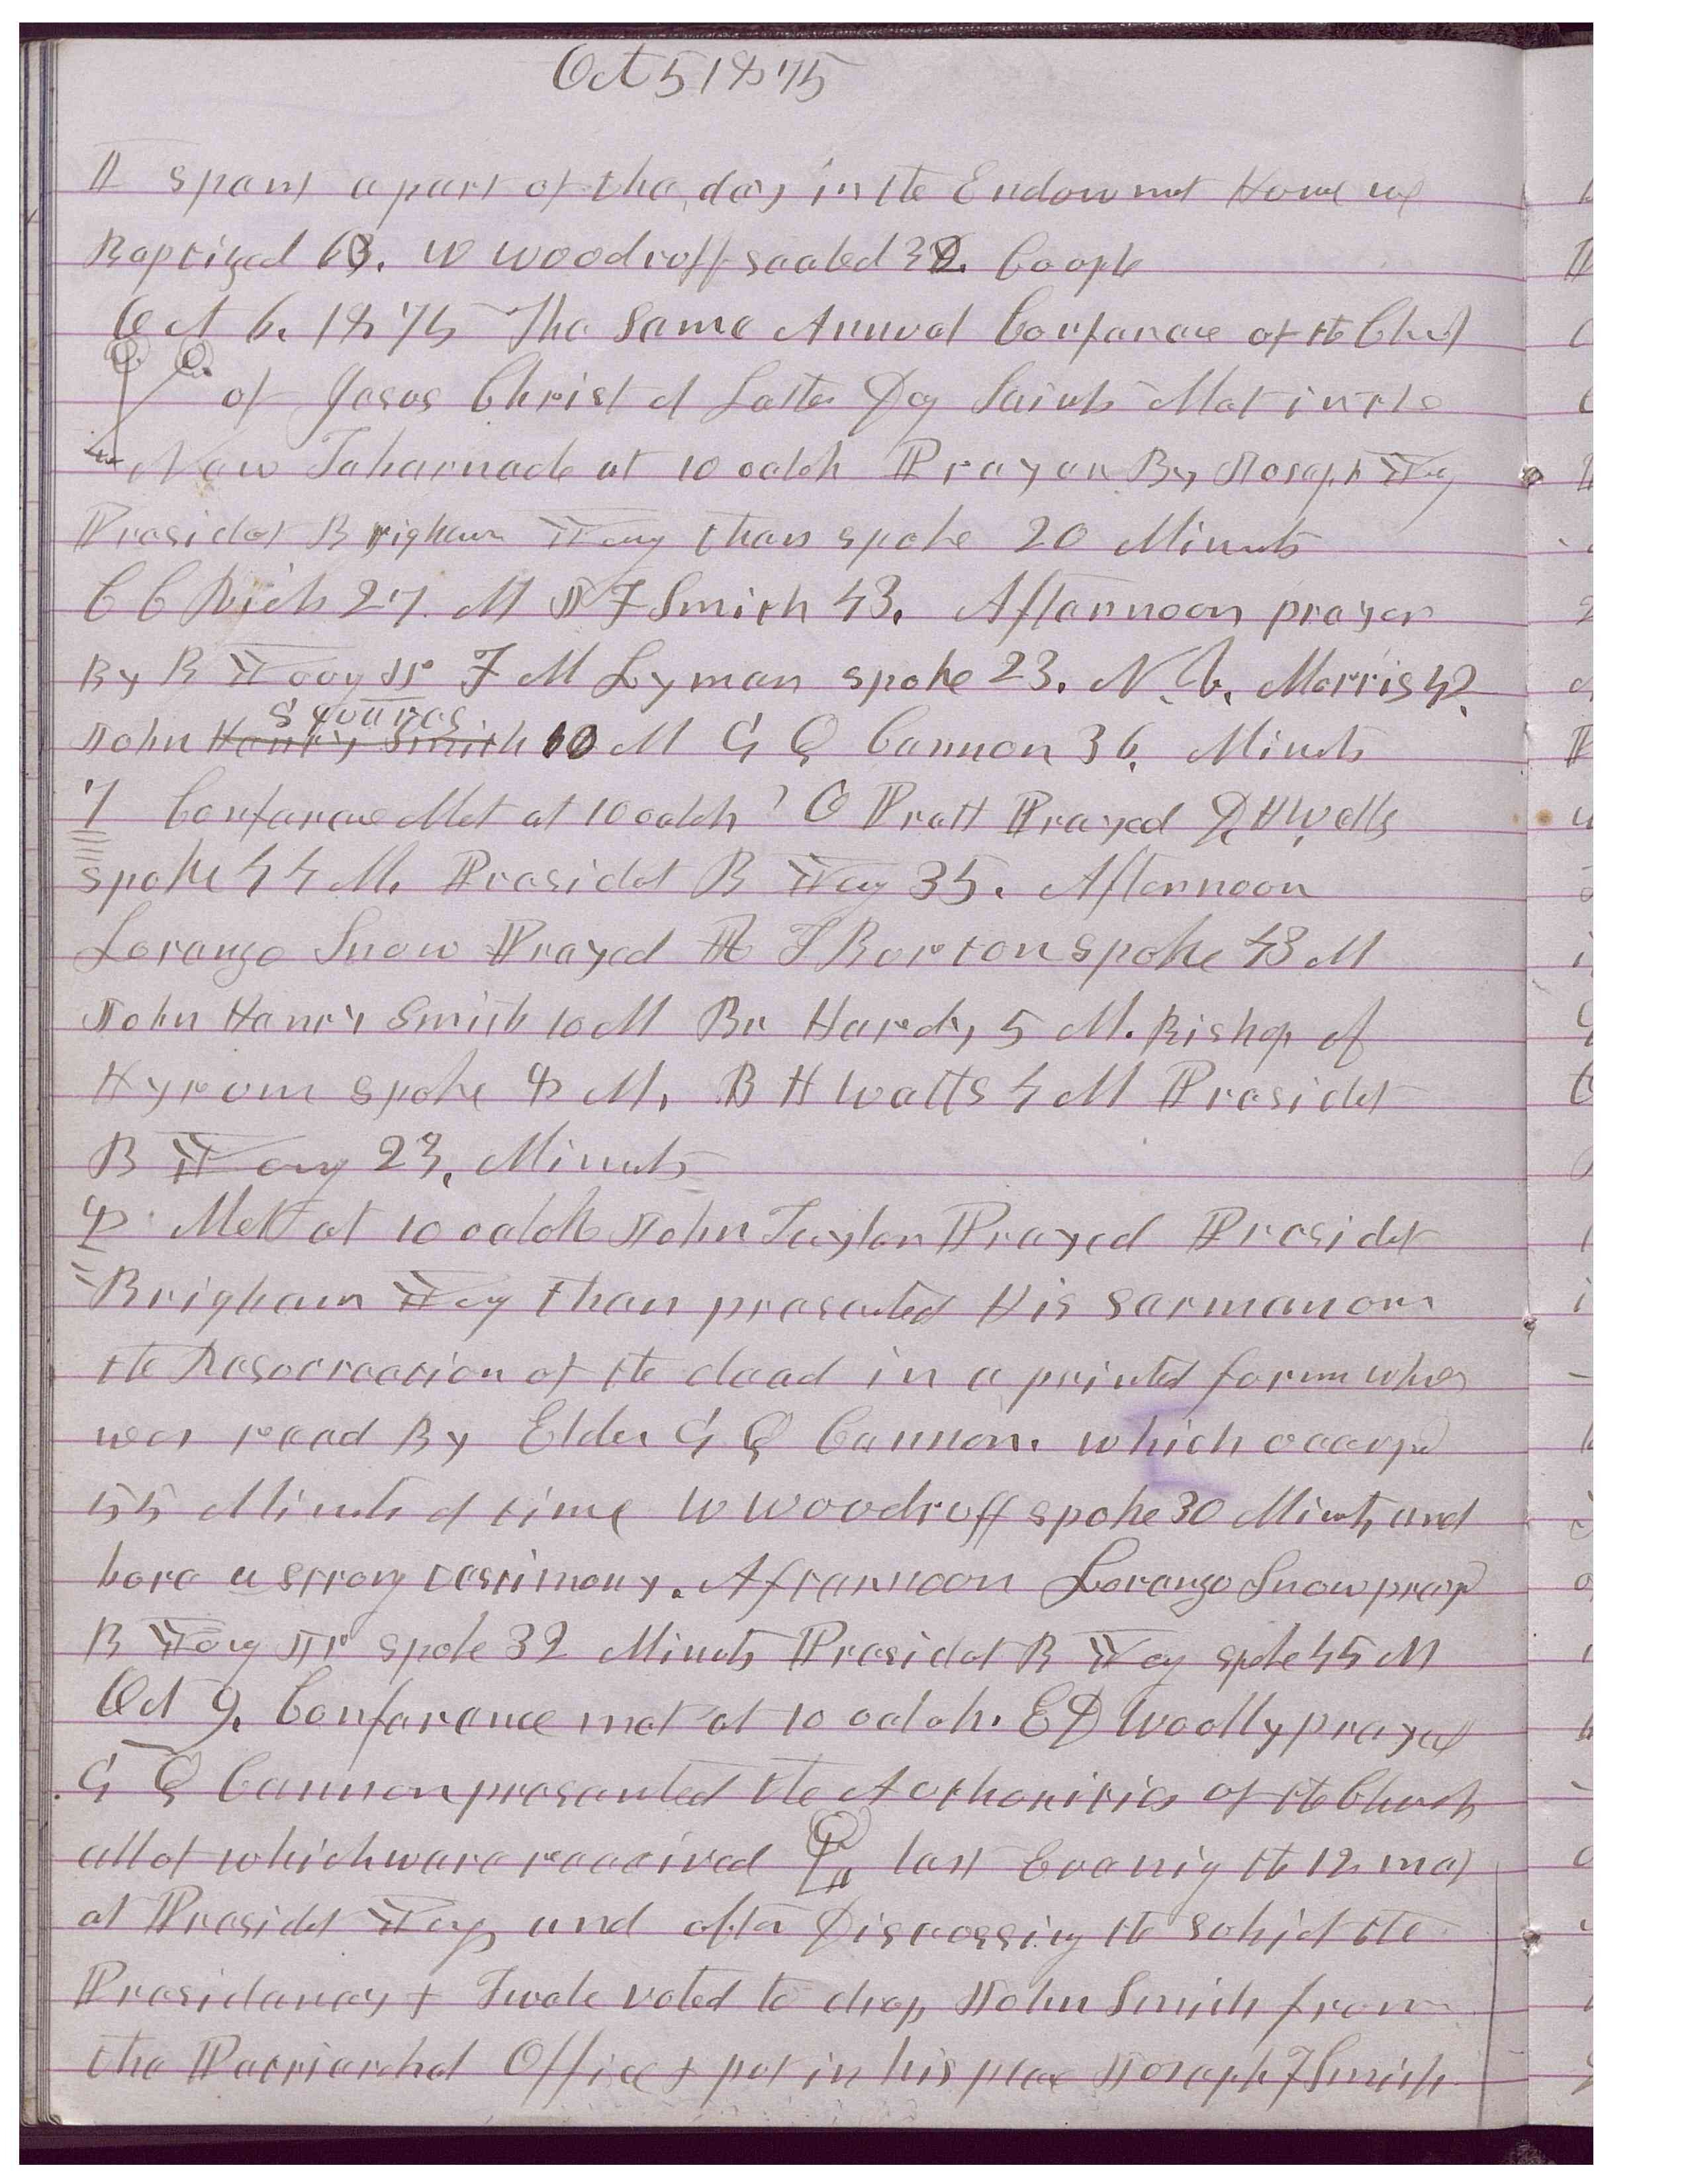 Oct 5 1875
I spent a part of the day in the Endowmet House we
Baptized 63. W Woodruff sealed 32. Couple
Oct 6. 1875 The Same Annual Conferance of the Chur
of Jesus Christ of Latter Day Saints Met in the
New Tabernacle at 10 oclok Prayer By Joseph Yog
Presidet Brigham Yog then spoke 20 Minuts
C C Rich 27. M J F Smith 43. Afternoon prayer
By B Young Jr F M Lyman spoke 23. N. V. Morris 42.
Squires
John Henry Smith 10 M G Q Cannon 36. Minuts
7 Conferance Met at 10 oclok O Pratt Prayed D. H Wells
spoke 44 M. Presidet B Yog 35. Afternoon
Lorenzo Snow Prayed R T Burton spoke 43 M
John Henry Smith 10 M Br Hardy 5 M. Bishop of
Hyrum spoke 8 M. B H Watts 4 M Presidet
B Yog 23. Minuts
8 Met at 10 oclok John Taylor Prayed Presidet
Brigham Yog then presented His sermon on
the Resurrection of the dead in a printed form whi
was read By Elder G Q Cannon. which occupd
55 Minuts of time W Woodruff spoke 30 Minuts and
bore a strong testimony. Afternoon Lorenzo Snow prayd
B Yog Jr spoke 32 Minuts Presidet B Yog spoke 45 M
Oct 9. Conferance met at 10 oclok. E D Woolly prayed
G Q Cannon presented the Authorities of the Church
all of which were received last Evenig the 12 met
at Presidet Yogs and after Discussing the subjet the
Presidency + Twele voted to drop John Smith from
the Patriarchal Office + put in his place Joseph F Smith